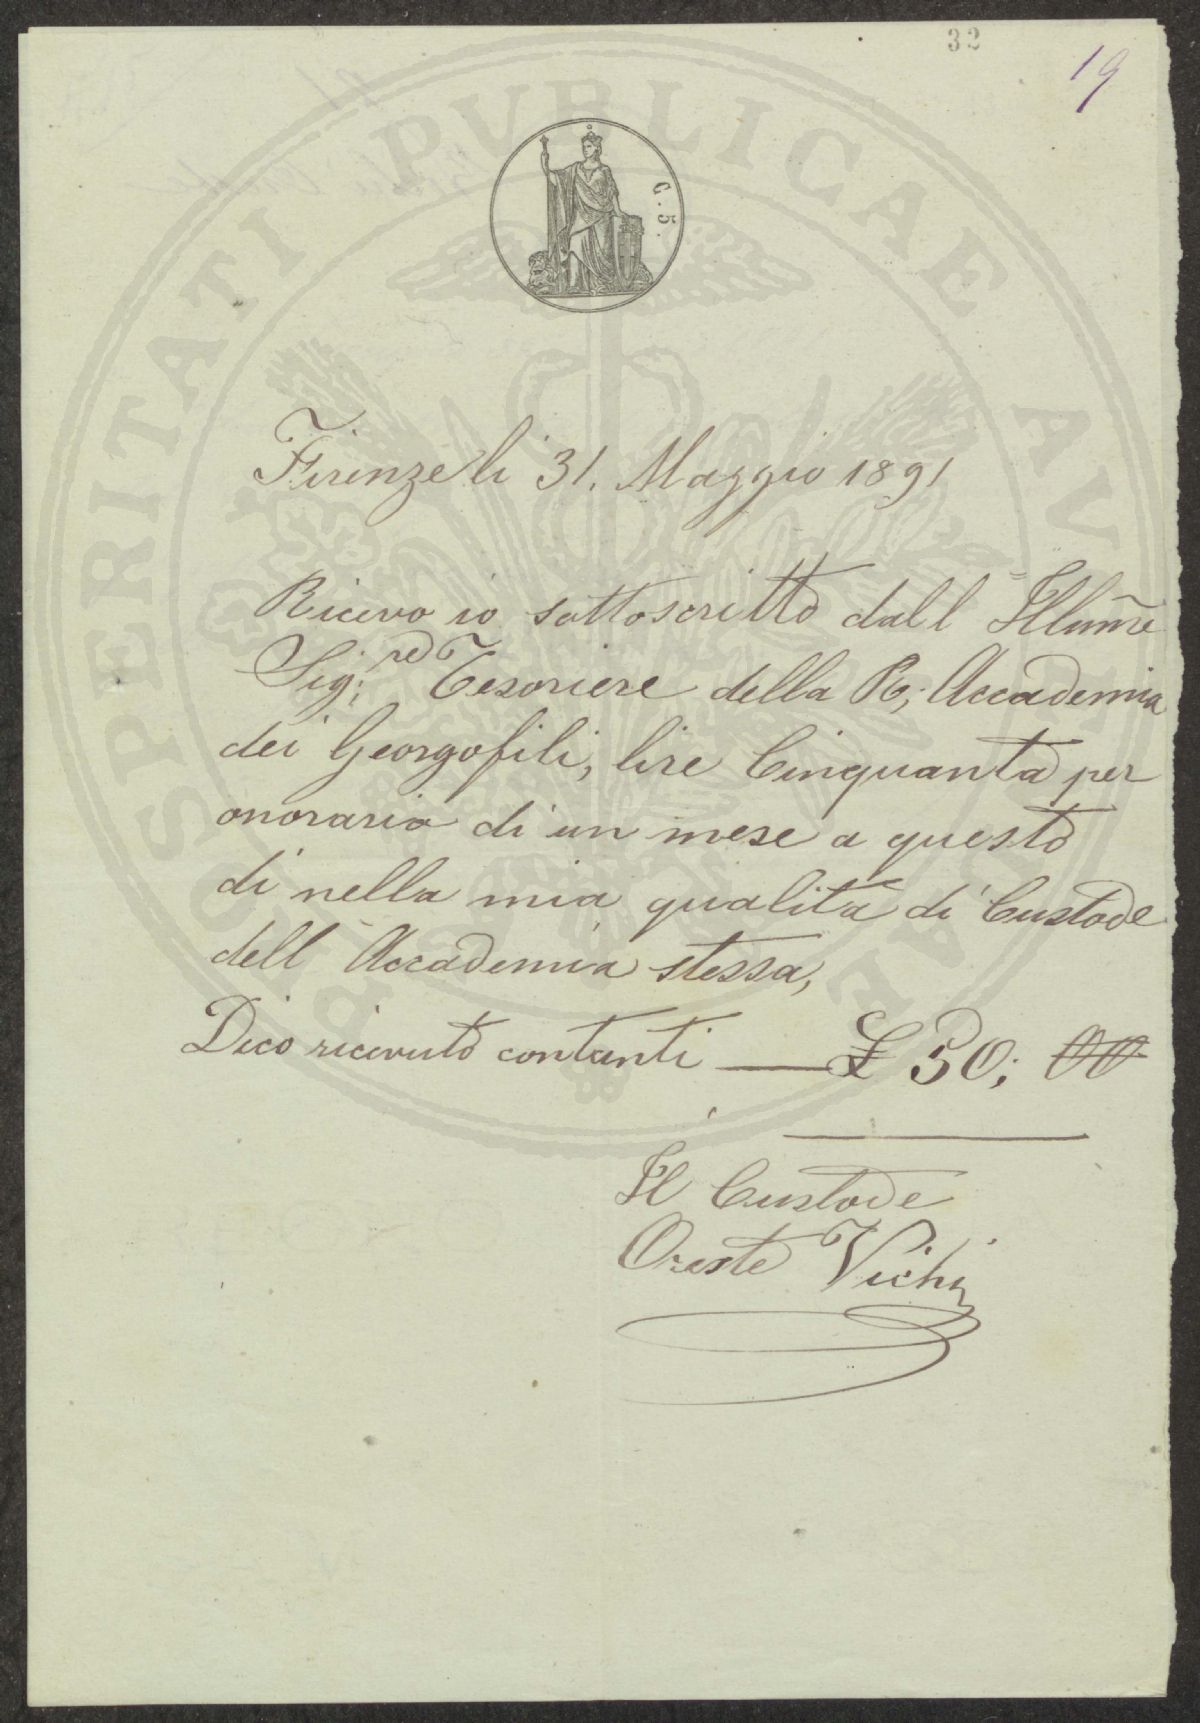 32
19
PROSPERITATI PVBLICAE AVGENDAE
C. 5.
Firenze li 31. Maggio 1891
Ricevo io sottoscritto dall Illumre
Sig:re Tesoriere della R; Accademia
dei Georgofili, lire Cinquanta per
onorario di un mese a questo
di nella mia qualità di Custode
dell Accademia stessa,
Dico ricevuto contanti — £ 50; 00
Il Custode
Oreste Vichi